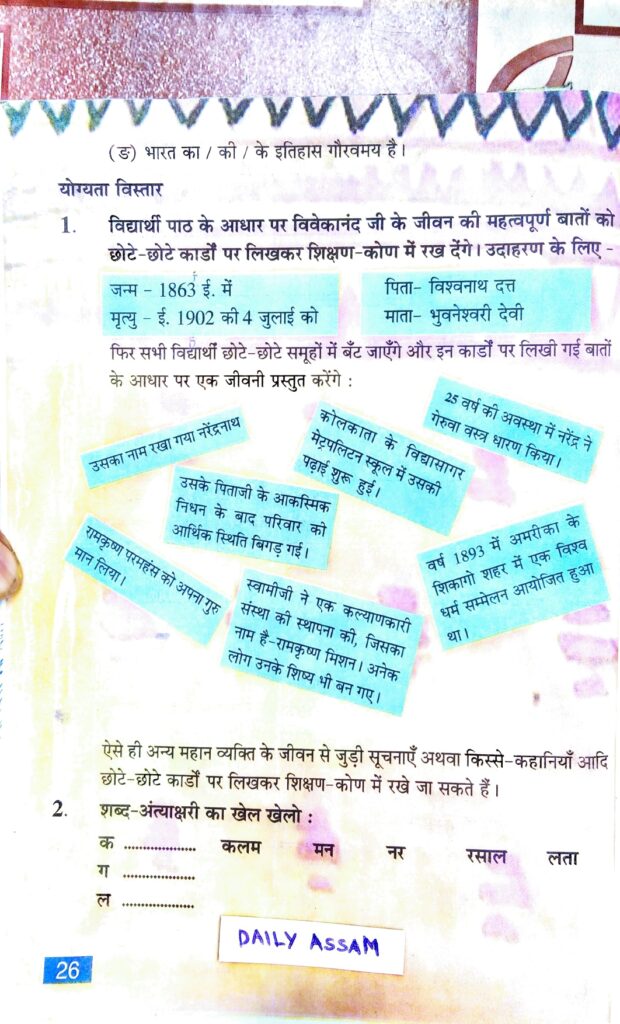 (ङ) भारत का / की / के इतिहास गौरवमय है।
योग्यता विस्तार
1. विद्यार्थी पाठ के आधार पर विवेकानंद जी के जीवन की महत्वपूर्ण बातों को
छोटे-छोटे कार्डों पर लिखकर शिक्षण-कोण में रख देंगे। उदाहरण के लिए -
जन्म - 1863 ई. में
मृत्यु - ई. 1902 की 4 जुलाई को
पिता- विश्वनाथ दत्त
माता- भुवनेश्वरी देवी
फिर सभी विद्यार्थी छोटे-छोटे समूहों में बँट जाएँगे और इन कार्डों पर लिखी गई बातों
के आधार पर एक जीवनी प्रस्तुत करेंगे :
उसका नाम रखा गया नरेंद्रनाथ
कोलकाता के विद्यासागर
मेट्रपलिटन स्कूल में उसकी
पढ़ाई शुरू हुई।
25 वर्ष की अवस्था में नरेंद्र ने
गेरुवा वस्त्र धारण किया।
उसके पिताजी के आकस्मिक
निधन के बाद परिवार को
आर्थिक स्थिति बिगड़ गई।
रामकृष्ण परमहंस को अपना गुरु
मान लिया।
स्वामीजी ने एक कल्याणकारी
संस्था की स्थापना की, जिसका
नाम है-रामकृष्ण मिशन। अनेक
लोग उनके शिष्य भी बन गए।
वर्ष 1893 में अमरीका के
शिकागो शहर में एक विश्व
धर्म सम्मेलन आयोजित हुआ
था।
ऐसे ही अन्य महान व्यक्ति के जीवन से जुड़ी सूचनाएँ अथवा किस्से-कहानियाँ आदि
छोटे-छोटे कार्डों पर लिखकर शिक्षण-कोण में रखे जा सकते हैं।
2. शब्द-अंत्याक्षरी का खेल खेलो :
क .................... कलम मन नर रसाल लता
ग ....................
ल ....................
DAILY ASSAM
26